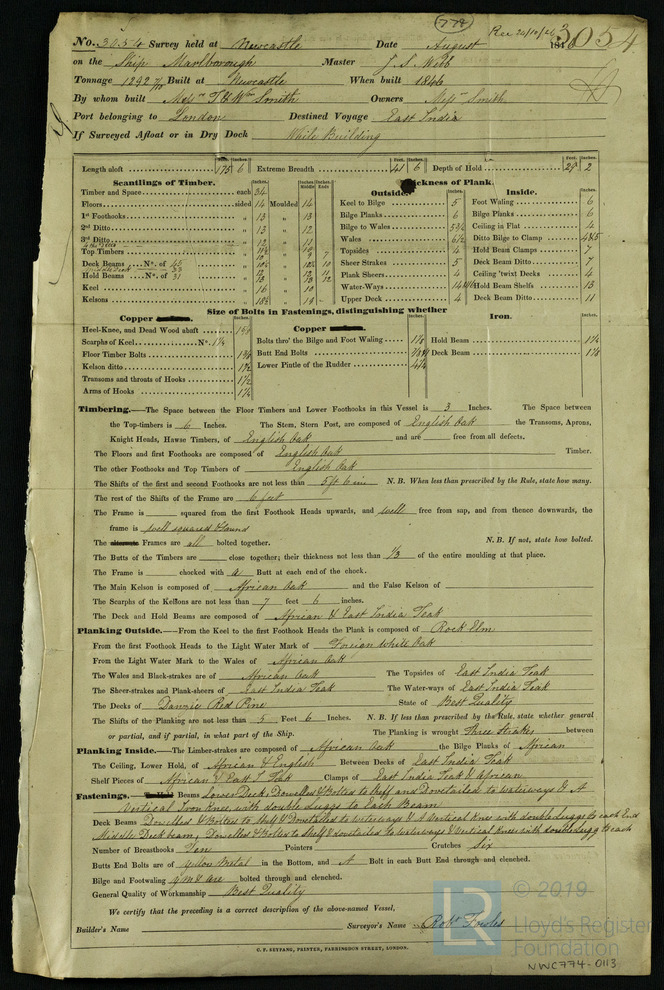 774 Rec 20/10/46
No. 3054 Survey held at Newcastle Date August 1846 3054
on the Ship Marlborough Master J. S. Webb
Tonnage 1292 Built at Newcastle When built 1846
By whom built Messrs T & Wm Smith Owners Messrs Smith
Port belonging to London Destined Voyage East India
If Surveyed Afloat or in Dry Dock While Building
Feet. Inches. Feet. Inches. Feet. Inches.
Length aloft 175 6 Extreme Breadth 41 6 Depth of Hold 29 2
Scantlings of Timber.
Timber and Space each 34
Floors sided 14 Moulded 14
1st Foothooks " 13 " 13
2nd Ditto " 13 " 12
3rd Ditto " 12 " 11
Top Timbers
Deck Beams No. of
Middle Deck
Hold Beams No. of 31
Keel " 16 " 16
Kelsons " "
Outside. Thickness of Plank. Inside.
Keel to Bilge 5 Foot Waling 6
Bilge Planks 6 Bilge Planks 6
Bilge to Wales Ceiling in Flat 4
Wales 6½ Ditto Bilge to Clamp 4&5
Topsides 4 Hold Beam Clamps 7
Sheer Strakes 5 Deck Beam Ditto 7
Plank Sheers 4 Ceiling 'twixt Decks 4
Water-Ways Hold Beam Shelfs 13
Upper Deck 4 Deck Beam Ditto 11
Size of Bolts in Fastenings, distinguishing whether
Copper Copper Iron.
Heel-Knee, and Dead Wood abaft
Scarphs of Keel No.
Floor Timber Bolts
Kelson ditto
Transoms and throats of Hooks
Arms of Hooks
Bolts thro' the Bilge and Foot Waling
Butt End Bolts
Lower Pintle of the Rudder
Hold Beam
Deck Beam
Timbering.—The Space between the Floor Timbers and Lower Foothooks in this Vessel is 3 Inches. The Space between
the Top-timbers is 6 Inches. The Stem, Stern Post, are composed of English Oak the Transoms, Aprons,
Knight Heads, Hawse Timbers, of English Oak and are free from all defects.
The Floors and first Foothooks are composed of English Oak Timber.
The other Foothooks and Top Timbers of English Oak
The Shifts of the first and second Foothooks are not less than 5 ft 6 in N. B. When less than prescribed by the Rule, state how many.
The rest of the Shifts of the Frame are 6 feet
The Frame is squared from the first Foothook Heads upwards, and well free from sap, and from thence downwards, the
frame is well squared & sound
The Frames are all bolted together. N. B. If not, state how bolted.
The Butts of the Timbers are close together; their thickness not less than 1/3 of the entire moulding at that place.
The Frame is chocked with a Butt at each end of the chock.
The Main Kelson is composed of African Oak and the False Kelson of
The Scarphs of the Kelsons are not less than 7 feet 6 inches.
The Deck and Hold Beams are composed of African & East India Teak
Planking Outside.—From the Keel to the first Foothook Heads the Plank is composed of Rock Elm
From the first Foothook Heads to the Light Water Mark of Foreign White Oak
From the Light Water Mark to the Wales of African Oak
The Wales and Black-strakes are of African Oak The Topsides of East India Teak
The Sheer-strakes and Plank-sheers of East India Teak The Water-ways of East India Teak
The Decks of Danzic Red Pine State of Best Quality
The Shifts of the Planking are not less than 5 Feet 6 Inches. N. B. If less than prescribed by the Rule, state whether general
or partial, and if partial, in what part of the Ship. The Planking is wrought Three Strakes between
Planking Inside.—The Limber-strakes are composed of African Oak the Bilge Planks of African
The Ceiling, Lower Hold, of African & English Between Decks of East India Teak
Shelf Pieces of African & East I. Teak Clamps of East India Teak & African
Fastenings, Beams Lower Deck, Dowelled & Bolted to Shelf and Dovetailed to waterways & A
Vertical Iron Knee, with double Luggs to Each Beam
Deck Beams Dowelled & Bolted to Shelf & Dovetailed to waterways & A Vertical Knee with double Luggs to each End
Middle Deck beam, Dowelled & Bolted to Shelf & dovetailed to waterways & Vertical Knee with double Lugg to each
Number of Breasthooks Ten Pointers Crutches Six
Butts End Bolts are of Yellow Metal in the Bottom, and A Bolt in each Butt End through and clenched.
Bilge and Footwaling Y M & are bolted through and clenched.
General Quality of Workmanship Best Quality
We certify that the preceding is a correct description of the above-named Vessel,
Builder's Name Surveyor's Name Robt Fowles
C. F. SEYFANG, PRINTER, FARRINGDON STREET, LONDON.
LR © 2019
Lloyd's Register
Foundation
NWC774-0113